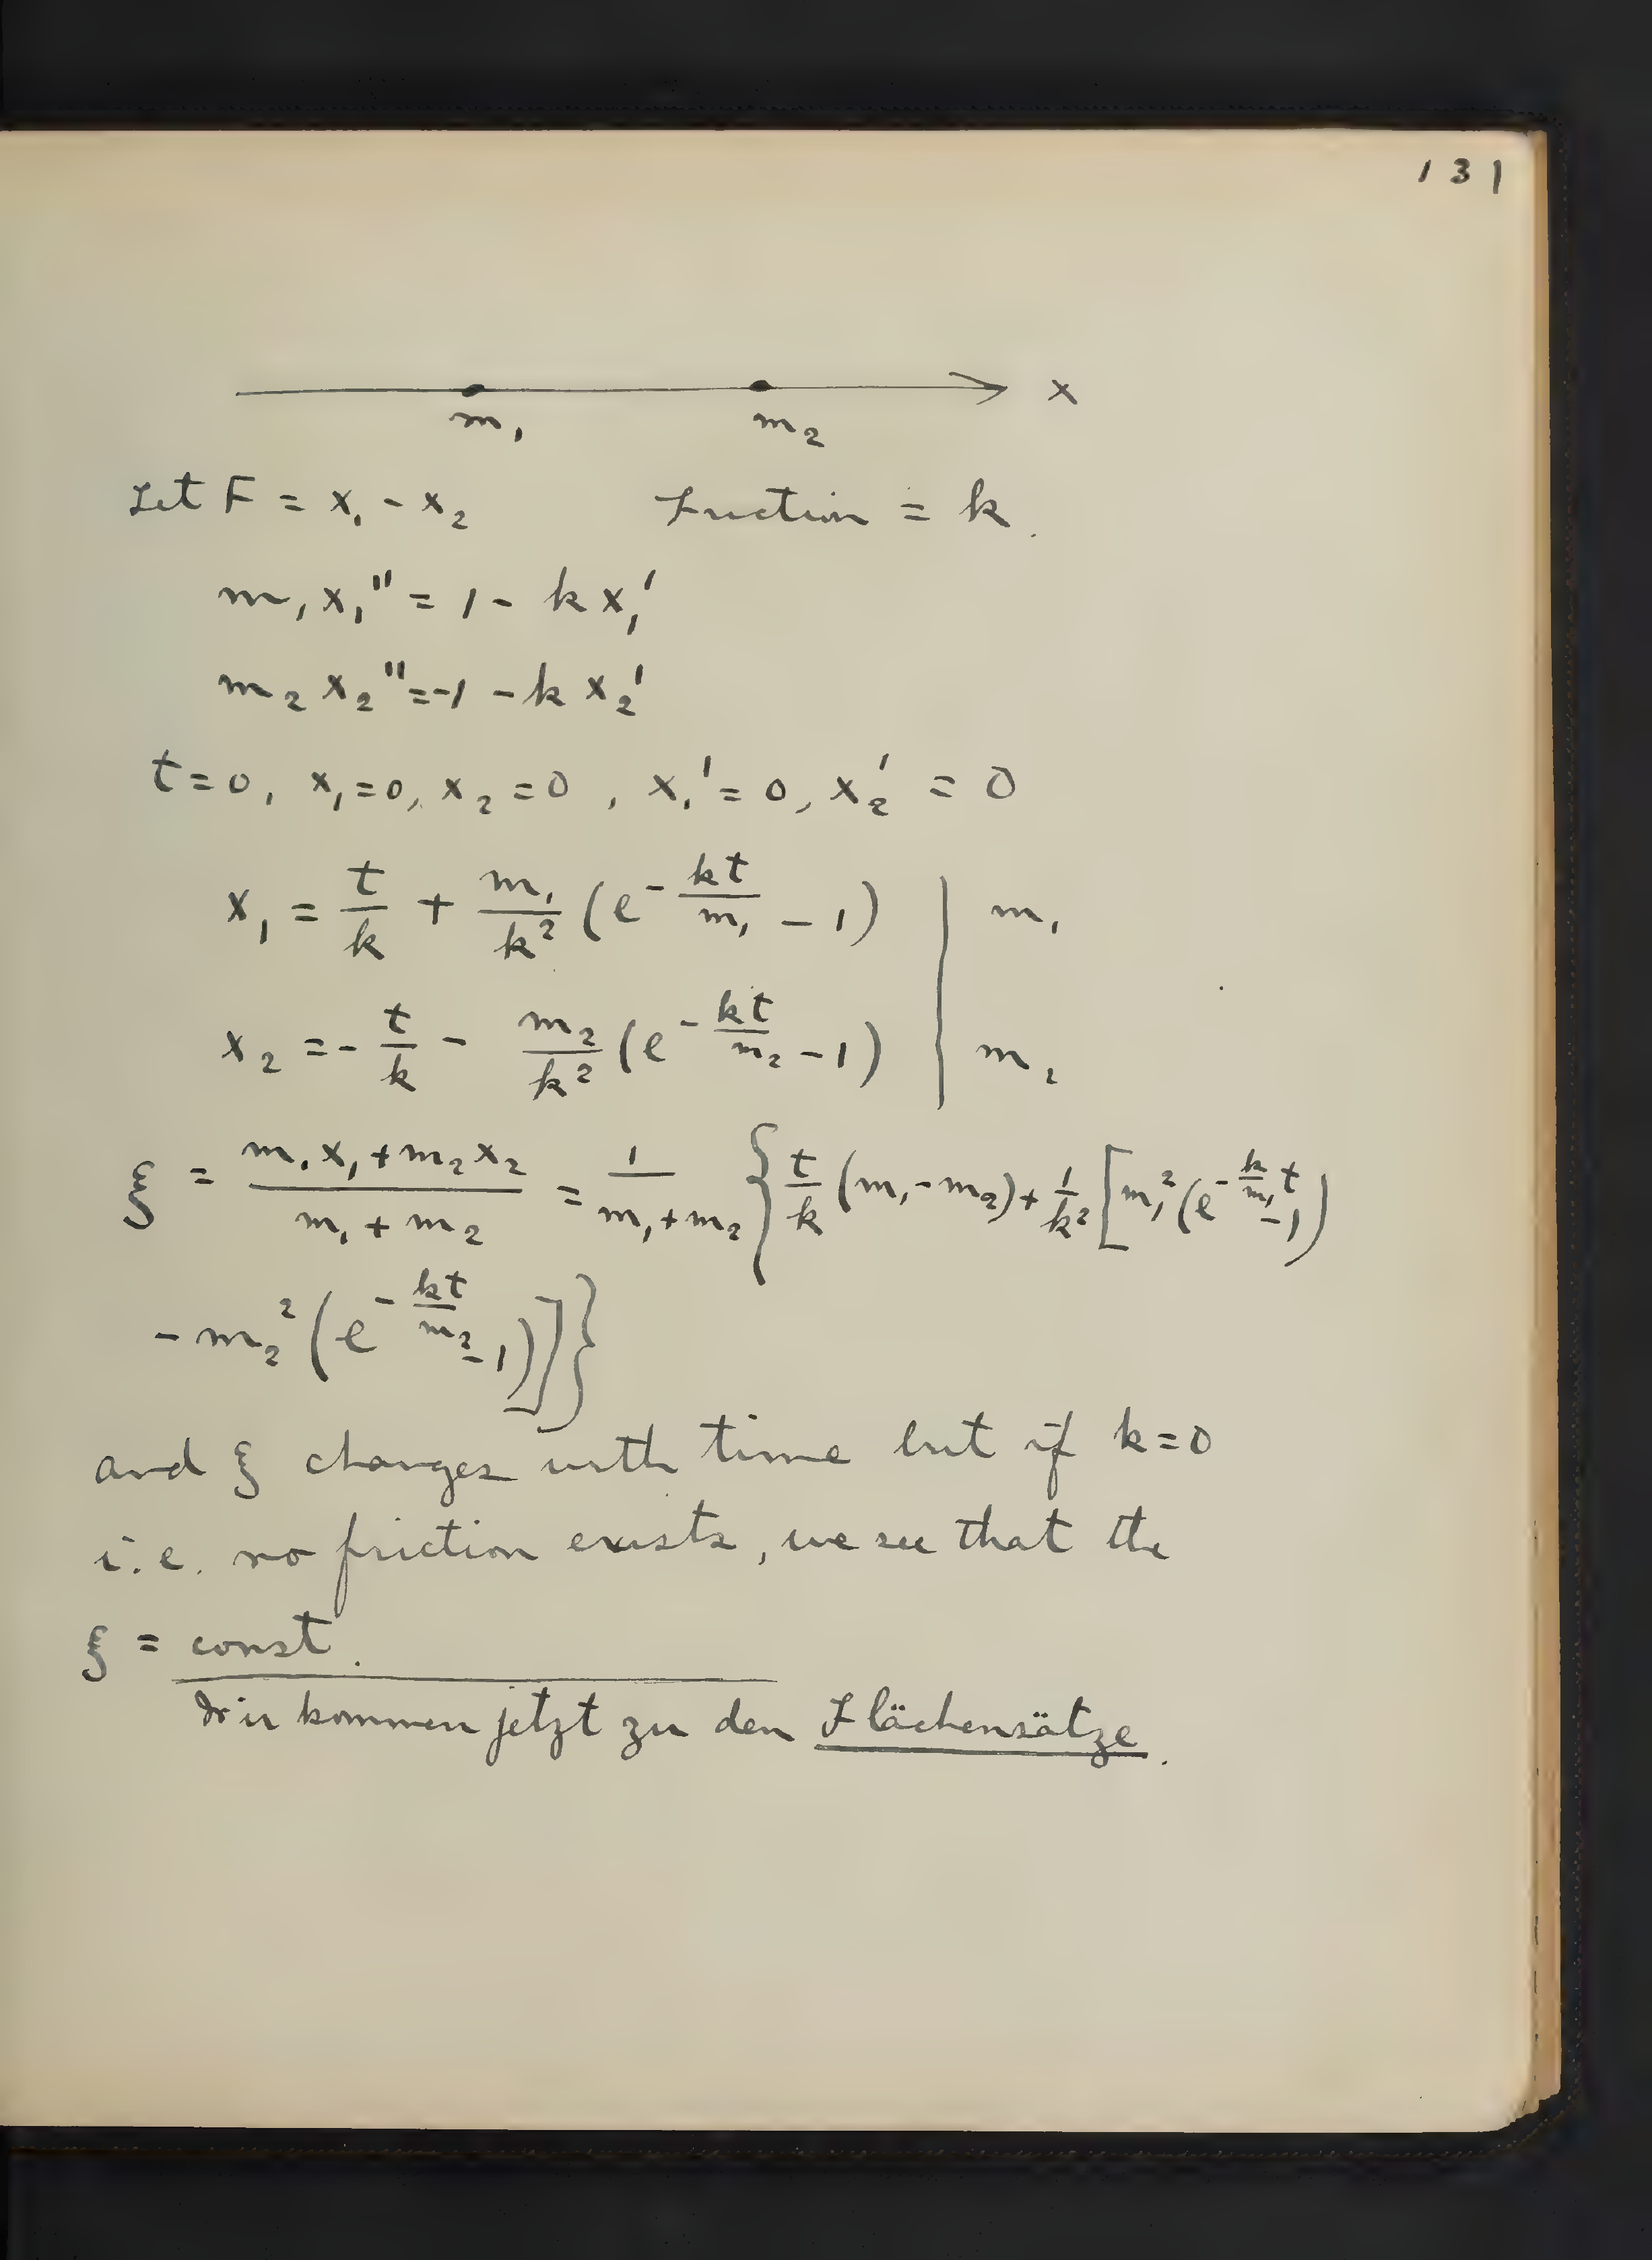 131
x
m₁ m₂
Let F = x₁ - x₂ Friction = k.
m₁x₁'' = 1 - kx₁'
m₂x₂'' = -1 - kx₂'
t=0, x₁=0, x₂=0, x₁'=0, x₂'=0
x₁ = t/k + m₁/k² (e^(-kt/m₁) - 1) | m₁
x₂ = - t/k - m₂/k² (e^(-kt/m₂) - 1) | m₂
ξ = (m₁x₁ + m₂x₂)/(m₁ + m₂) = 1/(m₁+m₂) { t/k (m₁-m₂) + 1/k² [m₁² (e^(-k/m₁ t) - 1)
- m₂² (e^(-kt/m₂) - 1)]}
and ξ changes with time but if k=0
i.e. no friction exists, we see that the
ξ = const.
Wir kommen jetzt zu den Flächensätze.